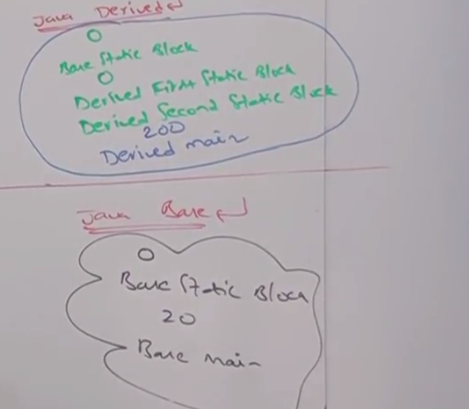 Java Derived↵
0
Base Static Block
0
Derived First Static Block
Derived Second Static Block
200
Derived main
Java Base↵
0
Base Static Block
20
Base main